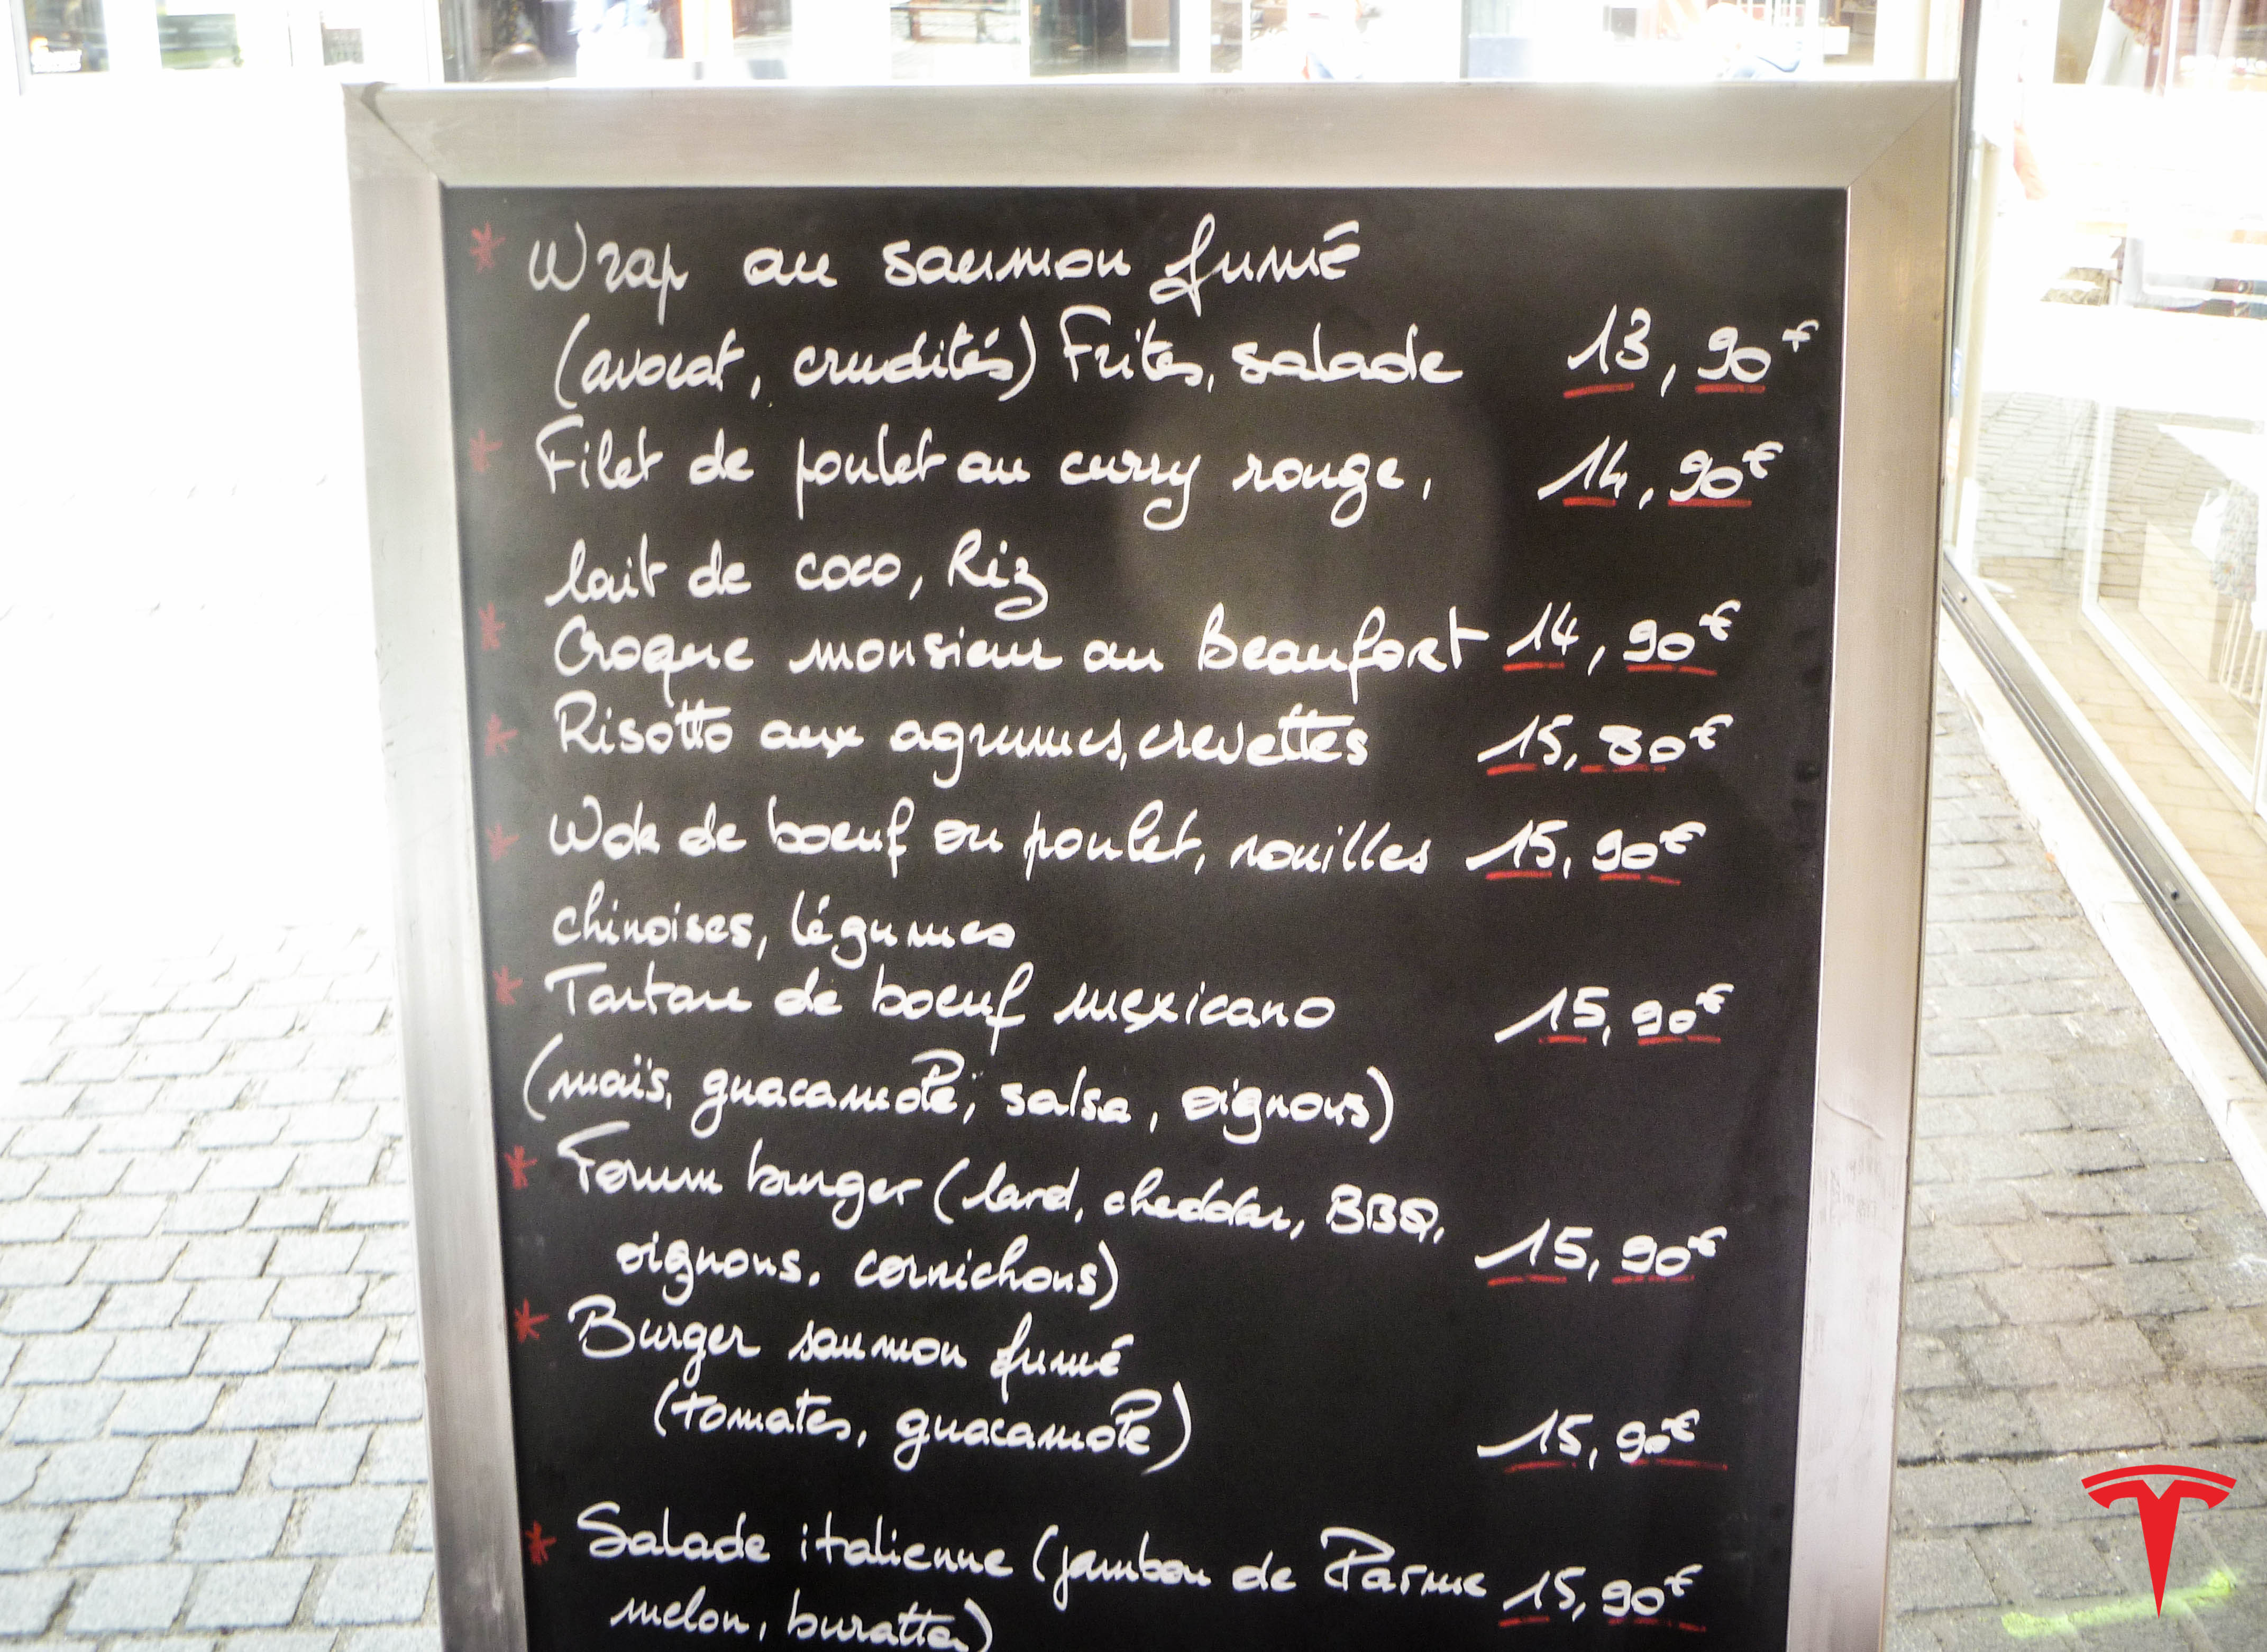 * Wrap au saumon fumé
(avocat, crudités) Frites, salade 13,90€
* Filet de poulet au curry rouge, 14,90€
lait de coco, Riz
* Croque monsieur au Beaufort 14,90€
* Risotto aux agrumes, crevettes 15,80€
* Wok de boeuf ou poulet, nouilles 15,90€
chinoises, légumes
* Tartare de boeuf mexicano 15,90€
(maïs, guacamole, salsa, oignons)
* Forum burger (lard, cheddar, BBQ,
oignons, cornichons) 15,90€
* Burger saumon fumé
(tomates, guacamole) 15,90€
* Salade italienne (jambon de Parme 15,90€
melon, buratta)